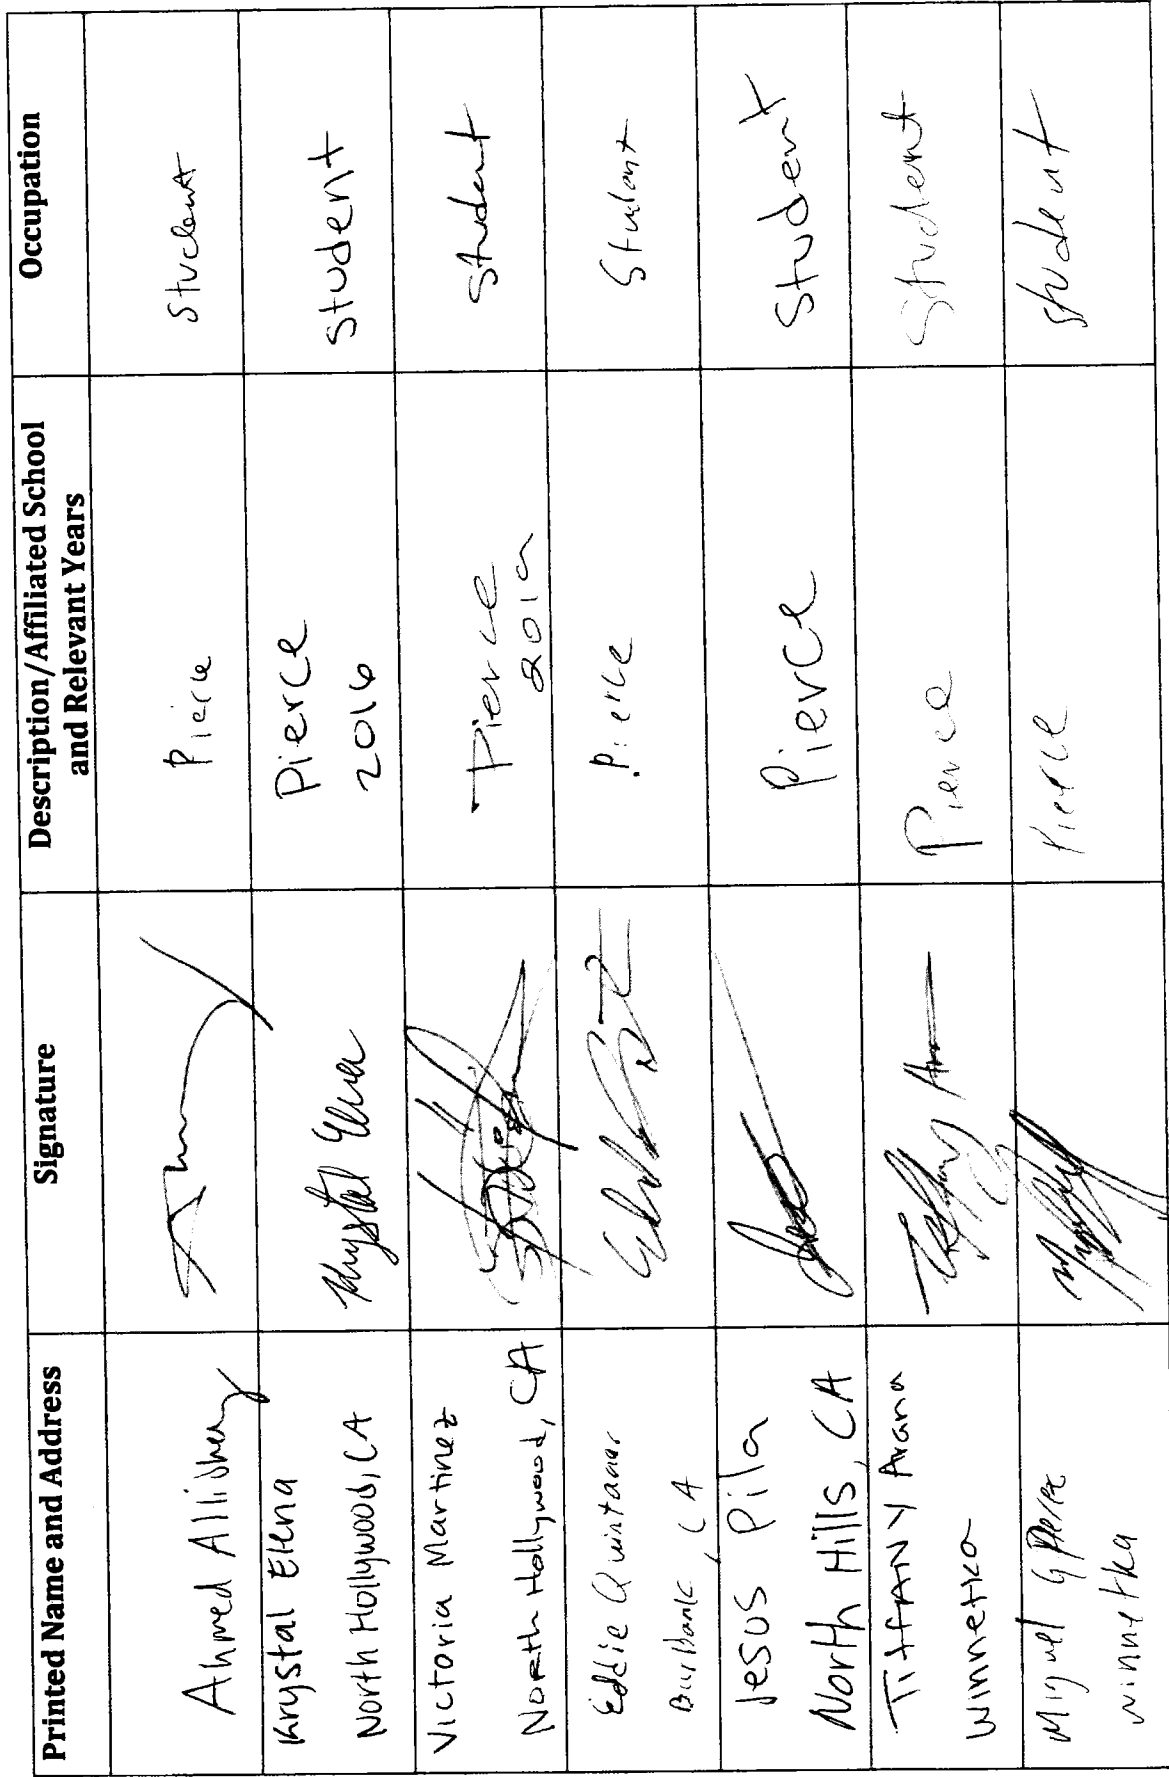 Printed Name and Address
Signature
Description/Affiliated School
and Relevant Years
Occupation
Ahmed
Pierce
Student
Krystal Elena
North Hollywood, CA
Krystal Elena
Pierce
2016
Student
Victoria Martinez
North Hollywood, CA
Pierce
student
Eddie Quintanar
Burbank, CA
Pierce
Student
Jesus Pila
North Hills, CA
Pierce
Student
TiffANY Arana
Winnetka
Pierce
Student
Miguel G Perez
winnetka
Pierce
student